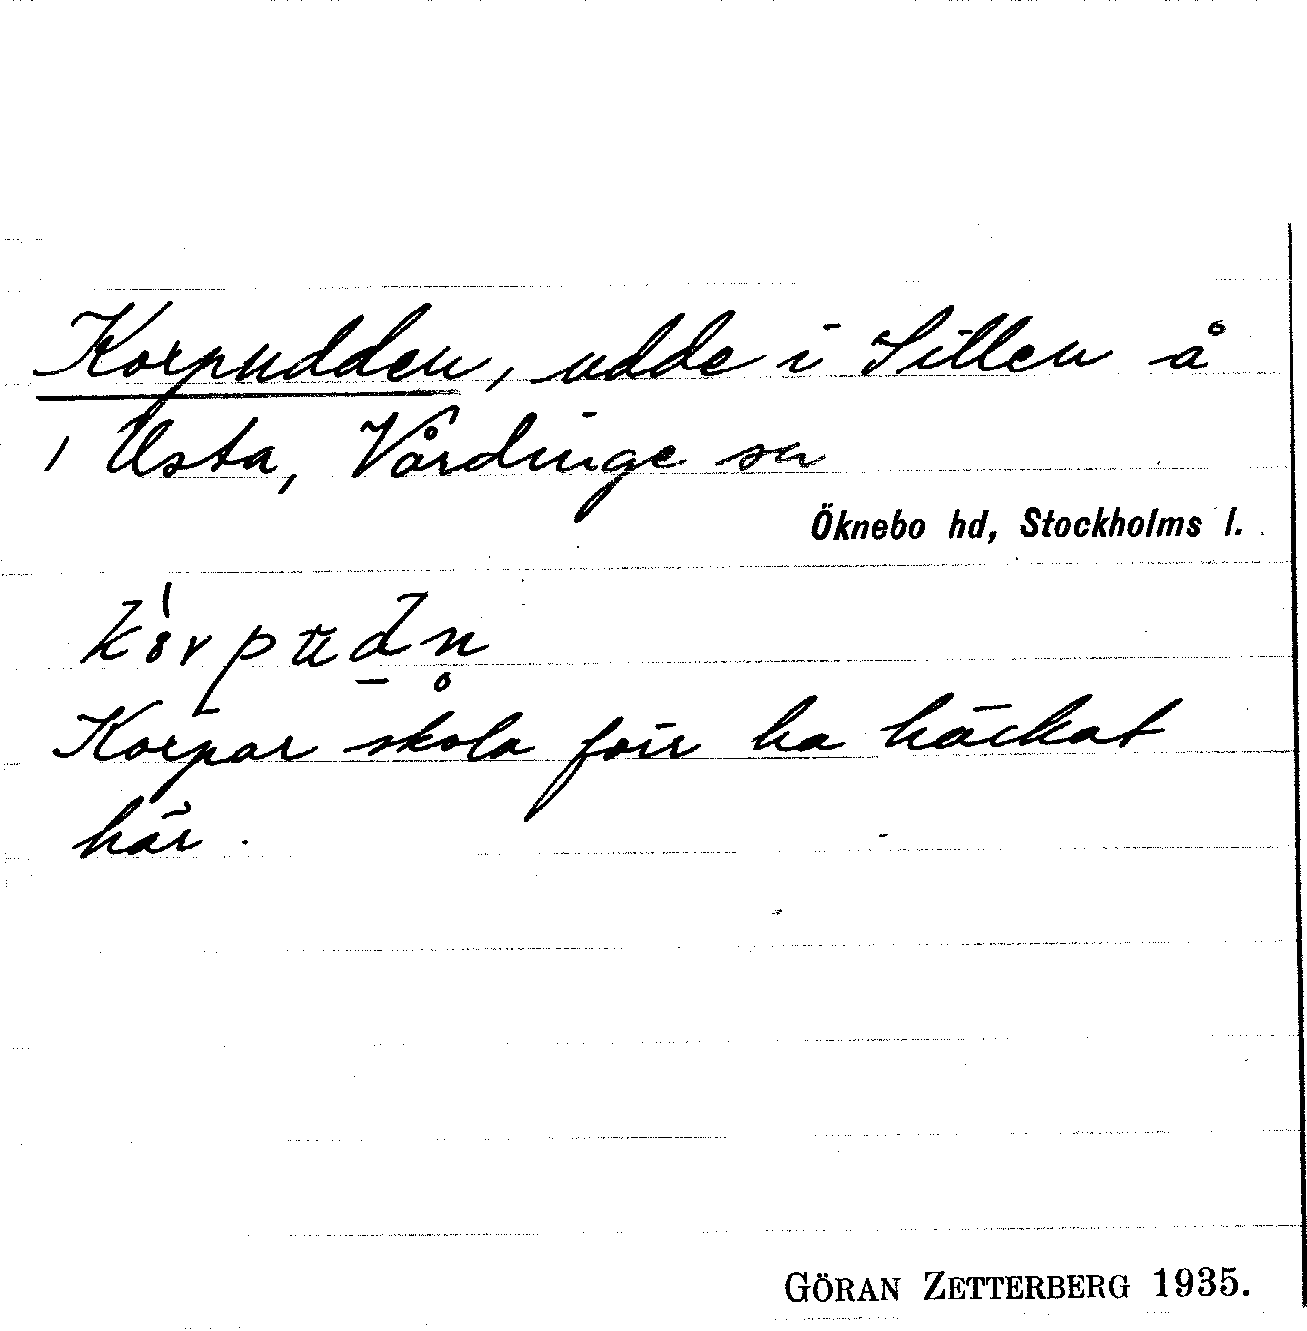 Korpudden, udde i Sillen å
1 Usta, Vårdinge sn
Öknebo hd, Stockholms l.
Korpar skola förr ha häckat
här.
GÖRAN ZETTERBERG 1935.